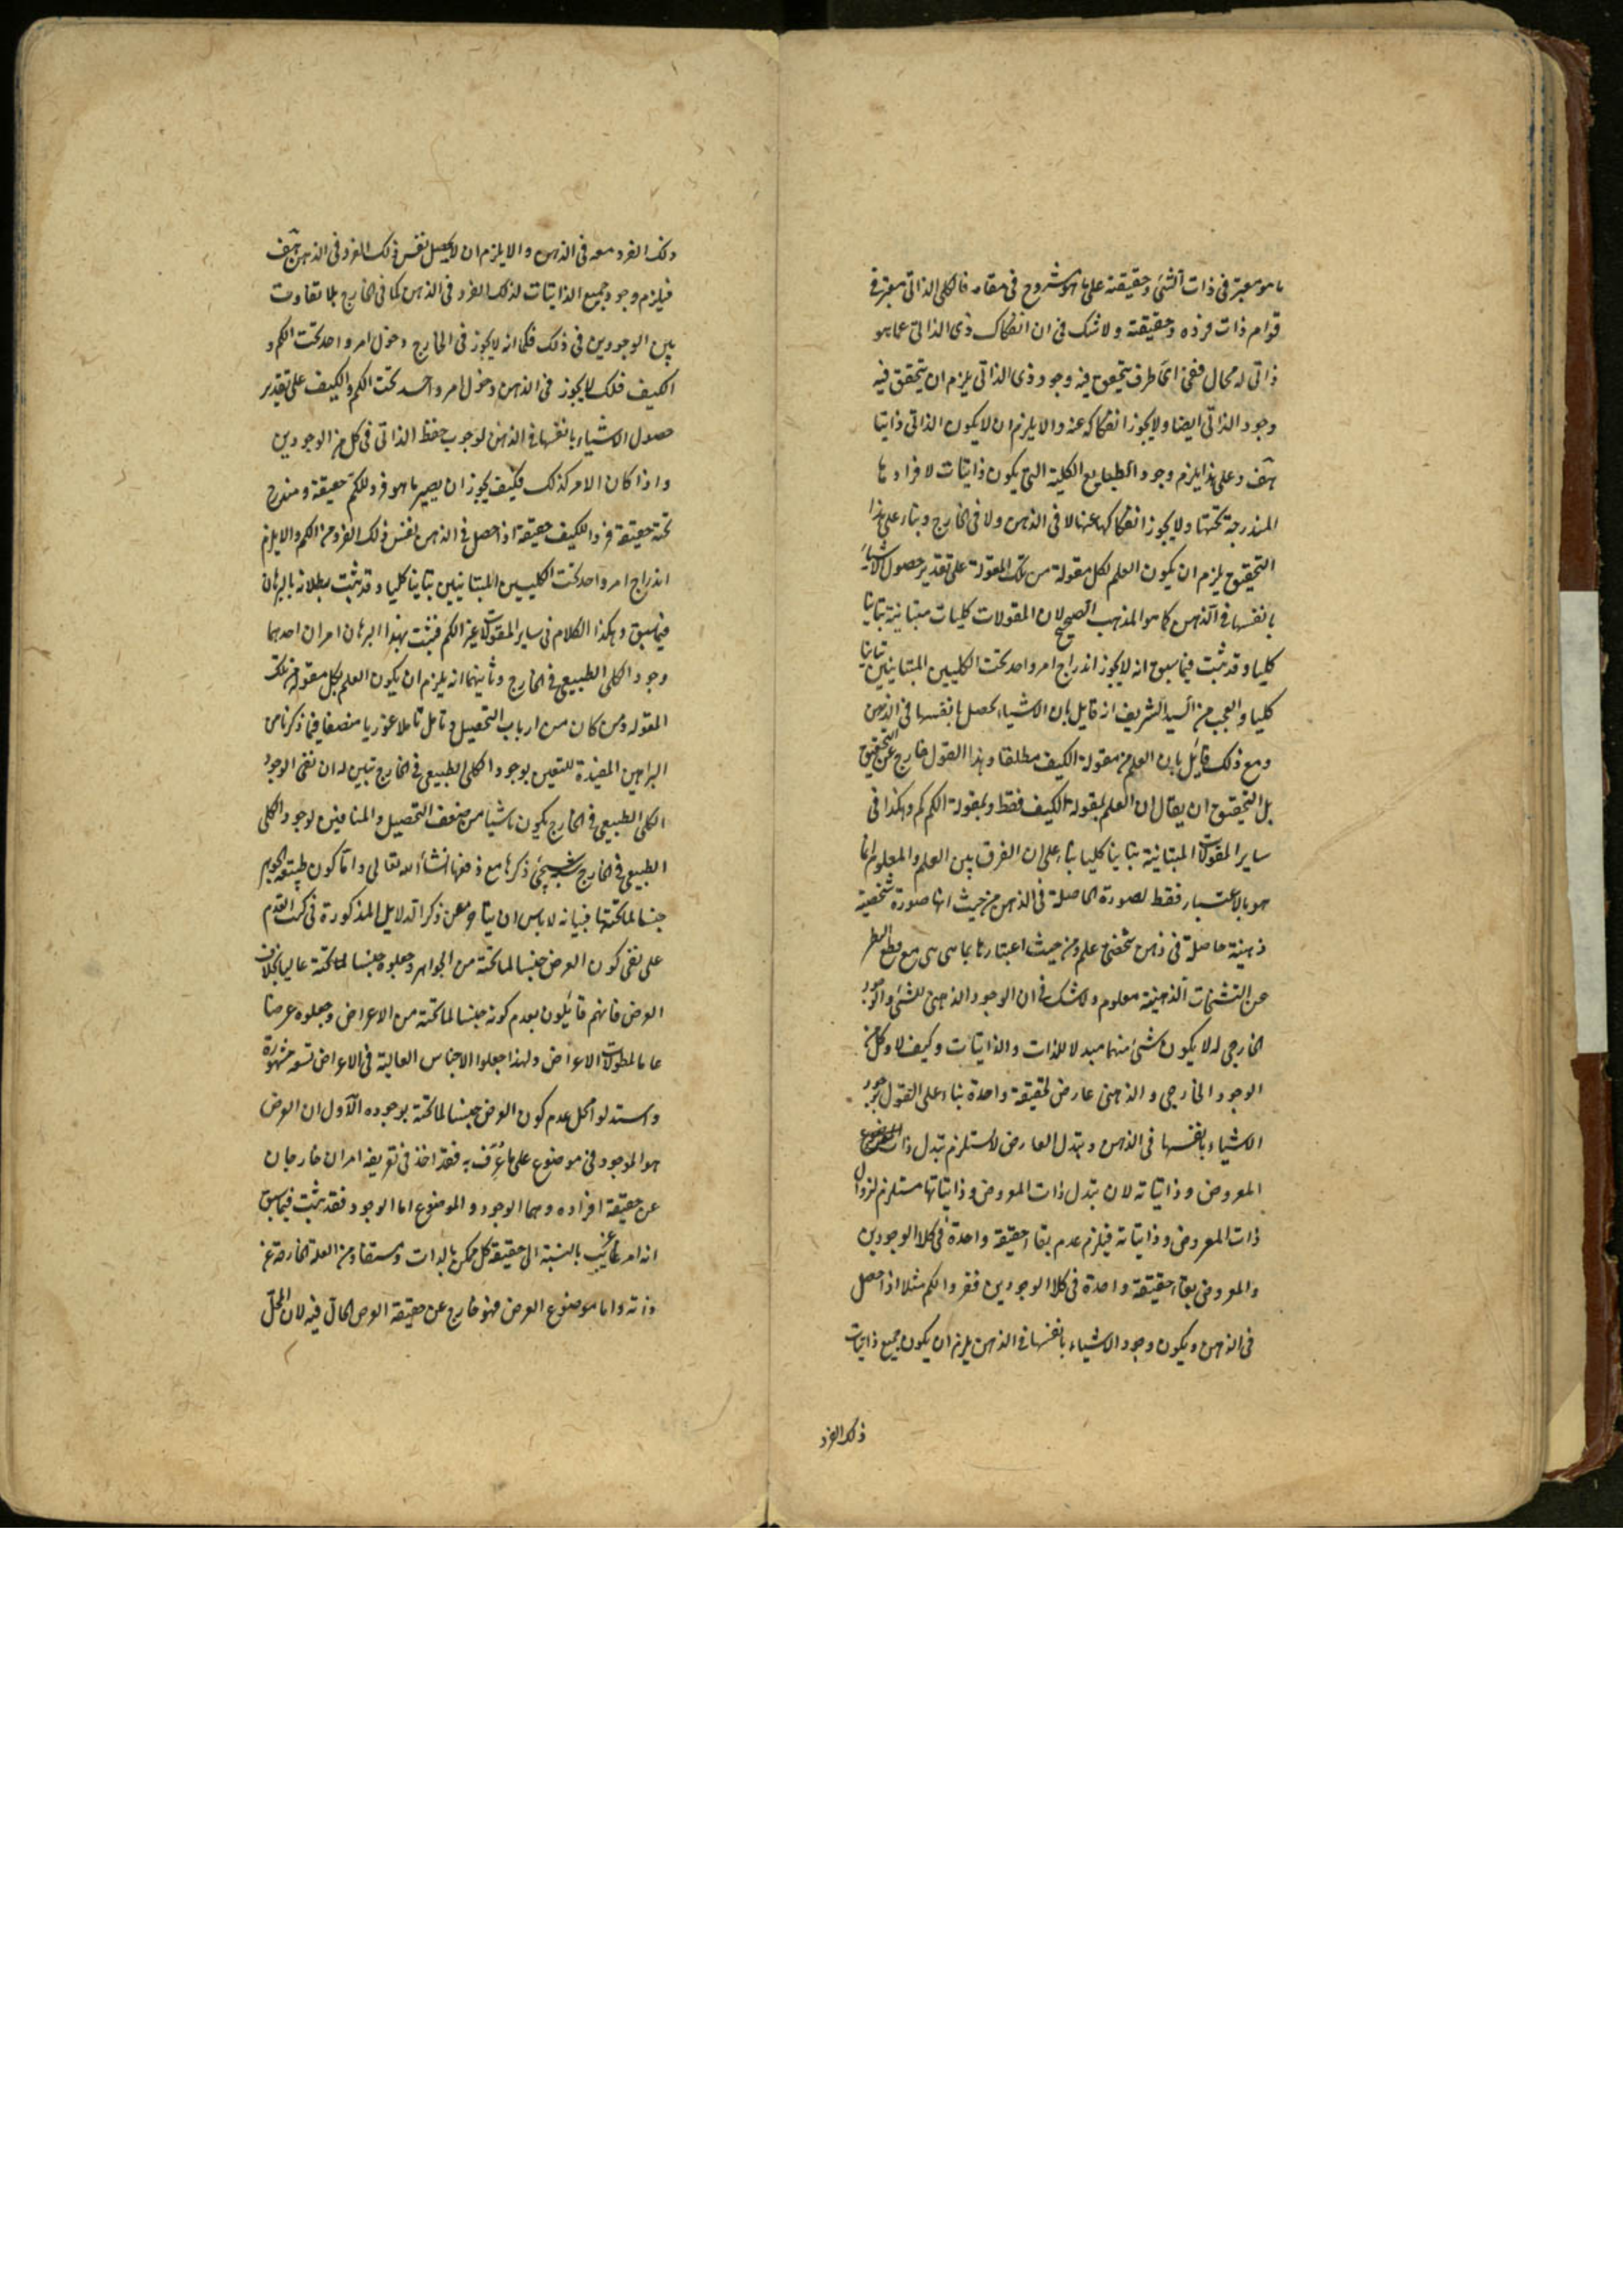 ما هو معتبر فى ذات الشئ وحقيقته على ما هو مشروح فى مقامه فالكلى الذاتى معتبر فى
قوام ذات فرده وحقيقته ولا شك فى ان انفكاك ذى الذاتى عما هو
ذاتى له محال ففى اى ظرف يتحقق فيه وجود ذى الذاتى يلزم ان يتحقق فيه
وجود الذاتى ايضا ولا يجوز انفكاكه عنه والا يلزم ان لا يكون الذاتى ذاتيا
هف وعلى هذا يلزم وجود الطبايع الكلية التى يكون ذاتيات لافرادها
المندرجة تحتها ولا يجوز انفكاكها عنها لا فى الذهن ولا فى الخارج وبناء على هذا
التحقيق يلزم ان يكون العلم لكل مقولة من تلك المقولة على تقدير حصول الاشياء
بانفسها فى الذهن كما هو المذهب الصحيح لان المقولات كليات متباينة تباينا
كليا وقد ثبت فيما سبق انه لا يجوز اندراج امر واحد تحت الكليين المتباينين تباينا
كليا والعجب من السيد الشريف انه قايل بان الاشياء يحصل بانفسها فى الذهن
ومع ذلك قايل بان العلم من مقولة الكيف مطلقا وهذا القول خارج عن التحقيق
بل التحقيق ان يقال ان العلم بمقولة الكيف كيف فقط وبمقولة الكم كم وهكذا فى
ساير المقولات المتباينة تباينا كليا بناء على ان الفرق بين العلم والمعلوم انما
هو بالاعتبار فقط لصورة الحاصلة فى الذهن من حيث انها صورة شخصية
ذهنية حاصلة فى ذهن شخصى علم ومن حيث اعتبارها بما هى هى مع قطع النظر
عن التشخصات الذهنية معلوم ولا شك فى ان الوجود الذهنى للشئ والوجود
الخارجى له لا يكون شئ منهما مبدلا للذات والذاتيات وكيف لا وكل من
الوجود الخارجى والذهنى عارض لحقيقة واحدة بناء على القول بوجود
الاشياء بانفسها فى الذهن وتبدل العارض لا يستلزم تبدل ذات
المعروض وذاتياته لان تبدل ذات المعروض وذاتياتها مستلزم لزوال
ذات المعروض وذاتياته فيلزم عدم بقاء حقيقة واحدة فى كلا الوجودين
والمفروض بقاء حقيقة واحدة فى كلا الوجودين ففرد الكم مثلا اذا حصل
فى الذهن ويكون وجود الاشياء بانفسها فى الذهن يلزم ان يكون جميع ذاتيات
ذلك الفرد
ذلك الفرد معه فى الذهن والا يلزم ان لا يحصل نفس ذلك الفرد فى الذهن هف
فيلزم وجود جميع الذاتيات لذلك الفرد فى الذهن كما فى الخارج بلا تفاوت
بين الوجودين فى ذلك فكما انه لا يجوز فى الخارج دخول امر واحد تحت الكم و
الكيف فكذلك لا يجوز فى الذهن دخول امر واحد تحت الكم والكيف على تقدير
حصول الاشياء بانفسها فى الذهن لوجوب حفظ الذاتى فى كل من الوجودين
واذا كان الامر كذلك فكيف يجوز ان يصير ما هو فرد للكم حقيقة ومندرج
تحته حقيقة فردا للكيف حقيقة اذا حصل فى الذهن نفس ذلك الفرد من الكم والا يلزم
اندراج امر واحد تحت الكليين المتباينين تباينا كليا وقد ثبت بطلانه بالبرهان
فيما سبق وهكذا الكلام فى ساير المقولات غير الكم فثبت بهذا البرهان امران احدهما
وجود الكلى الطبيعى فى الخارج وثانيهما انه يلزم ان يكون العلم بكل مقولة من تلك
المقوله ومن كان من ارباب التحصيل وتامل تاملا منصفا فيما ذكرنا من
البراهين المفيدة لليقين بوجود الكلى الطبيعى فى الخارج تبين له ان نفى الوجود
الكلى الطبيعى فى الخارج يكون ناشيا من ضعف التحصيل والمنافين لوجود الكلى
الطبيعى فى الخارج شبه يجئ ذكرها مع دفعها انشاء الله تعالى واما كون طبيعة الجوهر
جنسا لما تحتها فبيانه لا باس ان يتاخر عن ذكر الدلايل المذكورة فى كتب القوم
على نفى كون العرض جنسا لما تحته من الجواهر وجعلوه جنسا لما تحته عاليا بخلاف
العرض فانهم قايلون بعدم كونه جنسا لما تحته من الاعراض وجعلوه عرضا
عاما لمقولات الاعراض ولهذا جعلوا الاجناس العالية فى الاعراض تسعة مشهورة
واستدلوا على عدم كون العرض جنسا لما تحته بوجوه الاول ان العرض
هو الموجود فى موضوع على ما عرف به فقد اخذ فى تعريفه امران خارجان
عن حقيقة افراده وهما الوجود والموضوع اما الوجود فقد ثبت فيما سبق
انه امر غريب بالنسبة الى حقيقة كل ممكن بالذات ومستفاد من العلة الخارجة عن
ذاته واما موضوع العرض فهو خارج عن حقيقة العرض الحال فيه لان المحل